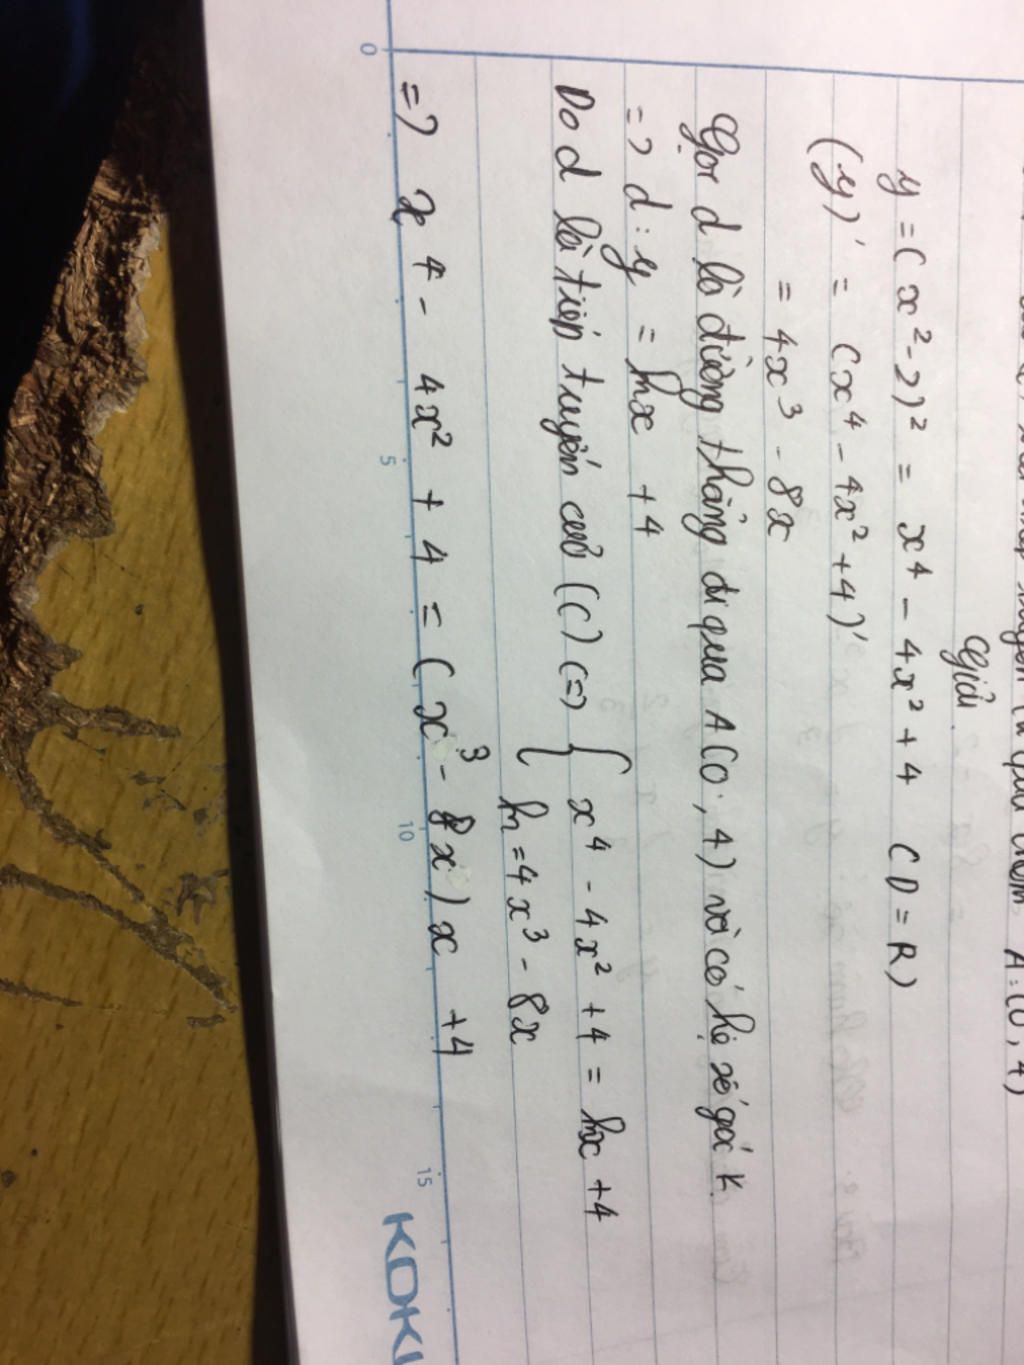 A(0, 4)
Giải
y = (x² - 2)² = x⁴ - 4x² + 4 (D = R)
(y)' = (x⁴ - 4x² + 4)'
= 4x³ - 8x
Gọi d là đường thẳng đi qua A(0; 4) và có hệ số góc k
=> d: y = kx + 4
Do d là tiếp tuyến của (C) (=) { x⁴ - 4x² + 4 = kx + 4
k = 4x³ - 8x
=> x⁴ - 4x² + 4 = (x³ - 8x)x + 4
0 5 10 15